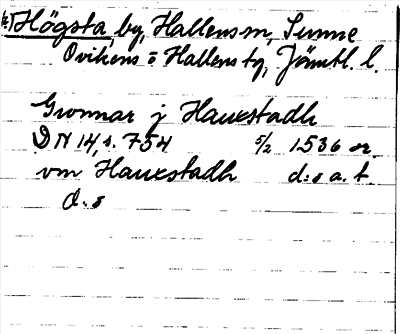 Högsta, by, Hallens sn, Sunne
Ovikens o Hallens tg, Jämtl. l.
Gwnnar j Hauxstadh
DN 14, s. 754 5/2 1536 or.
vm Hauxstadh d:o a. t.
d. s